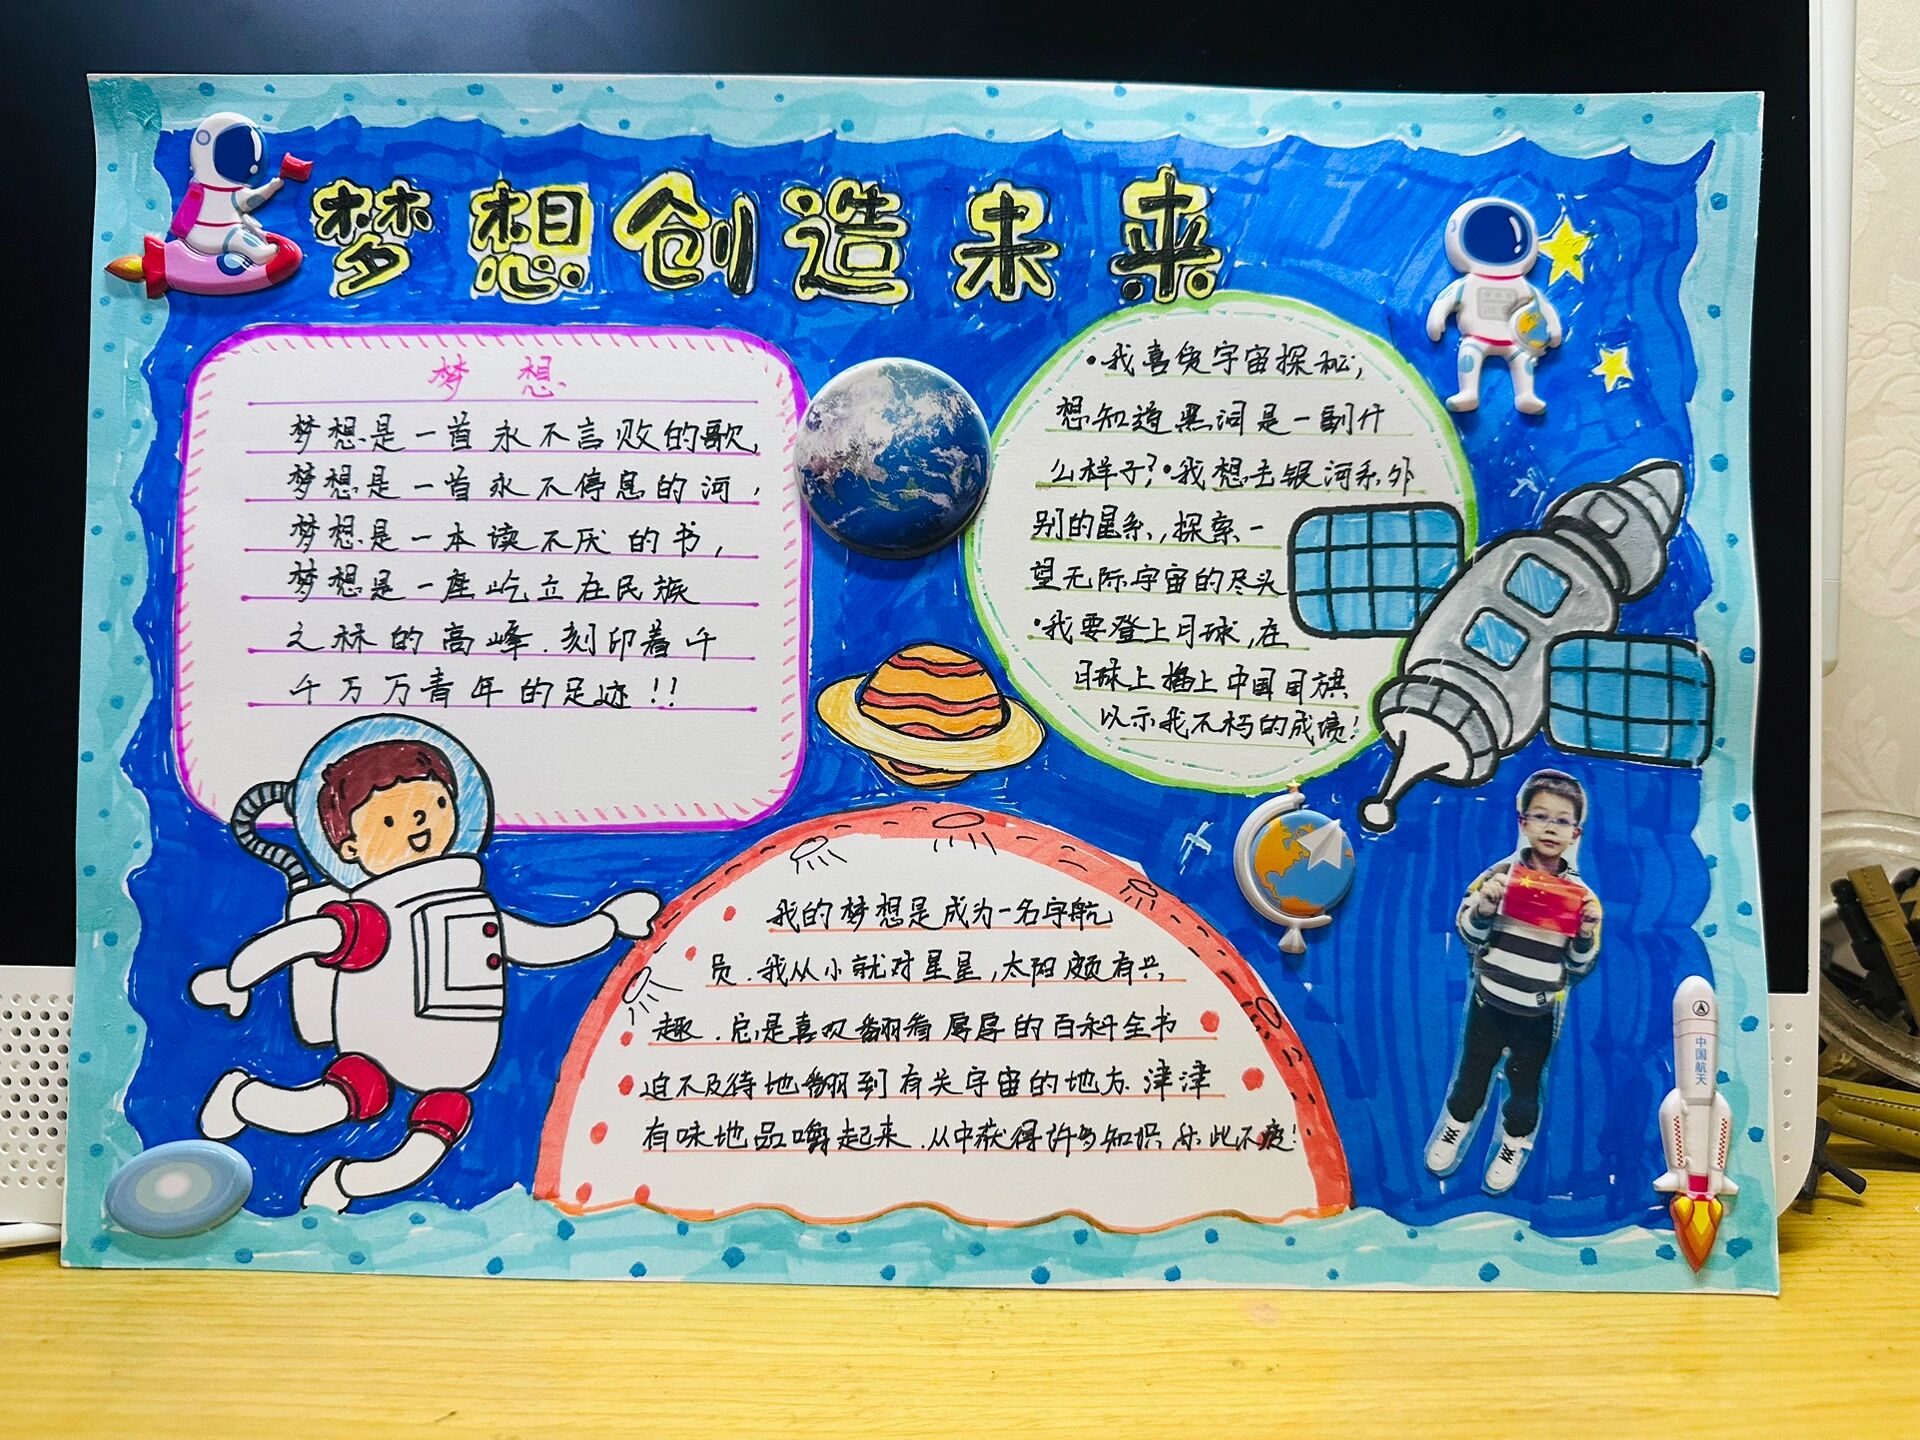 梦想创造未来
梦 想
梦想是一首永不言败的歌,
梦想是一首永不停息的河,
梦想是一本读不厌的书,
梦想是一座屹立在民族
之林的高峰.刻印着千
千万万青年的足迹!!
•我喜负宇宙探秘,
想知道黑洞是一副什
么样子?•我想去银河系外
别的星系,探索一
望无际宇宙的尽头
•我要登上月球,在
月球上插上中国国旗
以示我不朽的成绩!
我的梦想是成为一名宇航
员.我从小就对星星,太阳颇有兴
趣.总是喜欢翻看厚厚的百科全书
迫不及待地翻到有关宇宙的地方.津津
有味地品嚼起来.从中获得许多知识乐此不疲!
中国航天